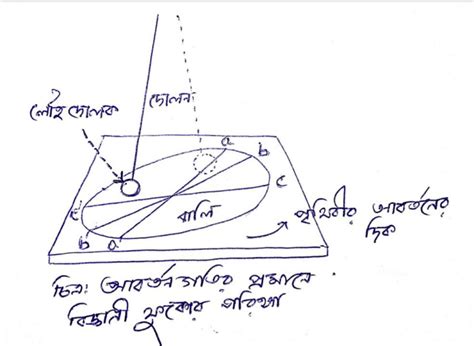 লৌহ দোলক
দোলন
a
b
c
c
b
a
বালি
পৃথিবীর আবর্তনের
দিক
চিত্র: আবর্তন গতির প্রমানে
বিজ্ঞানী ফুকোর পরিক্ষা